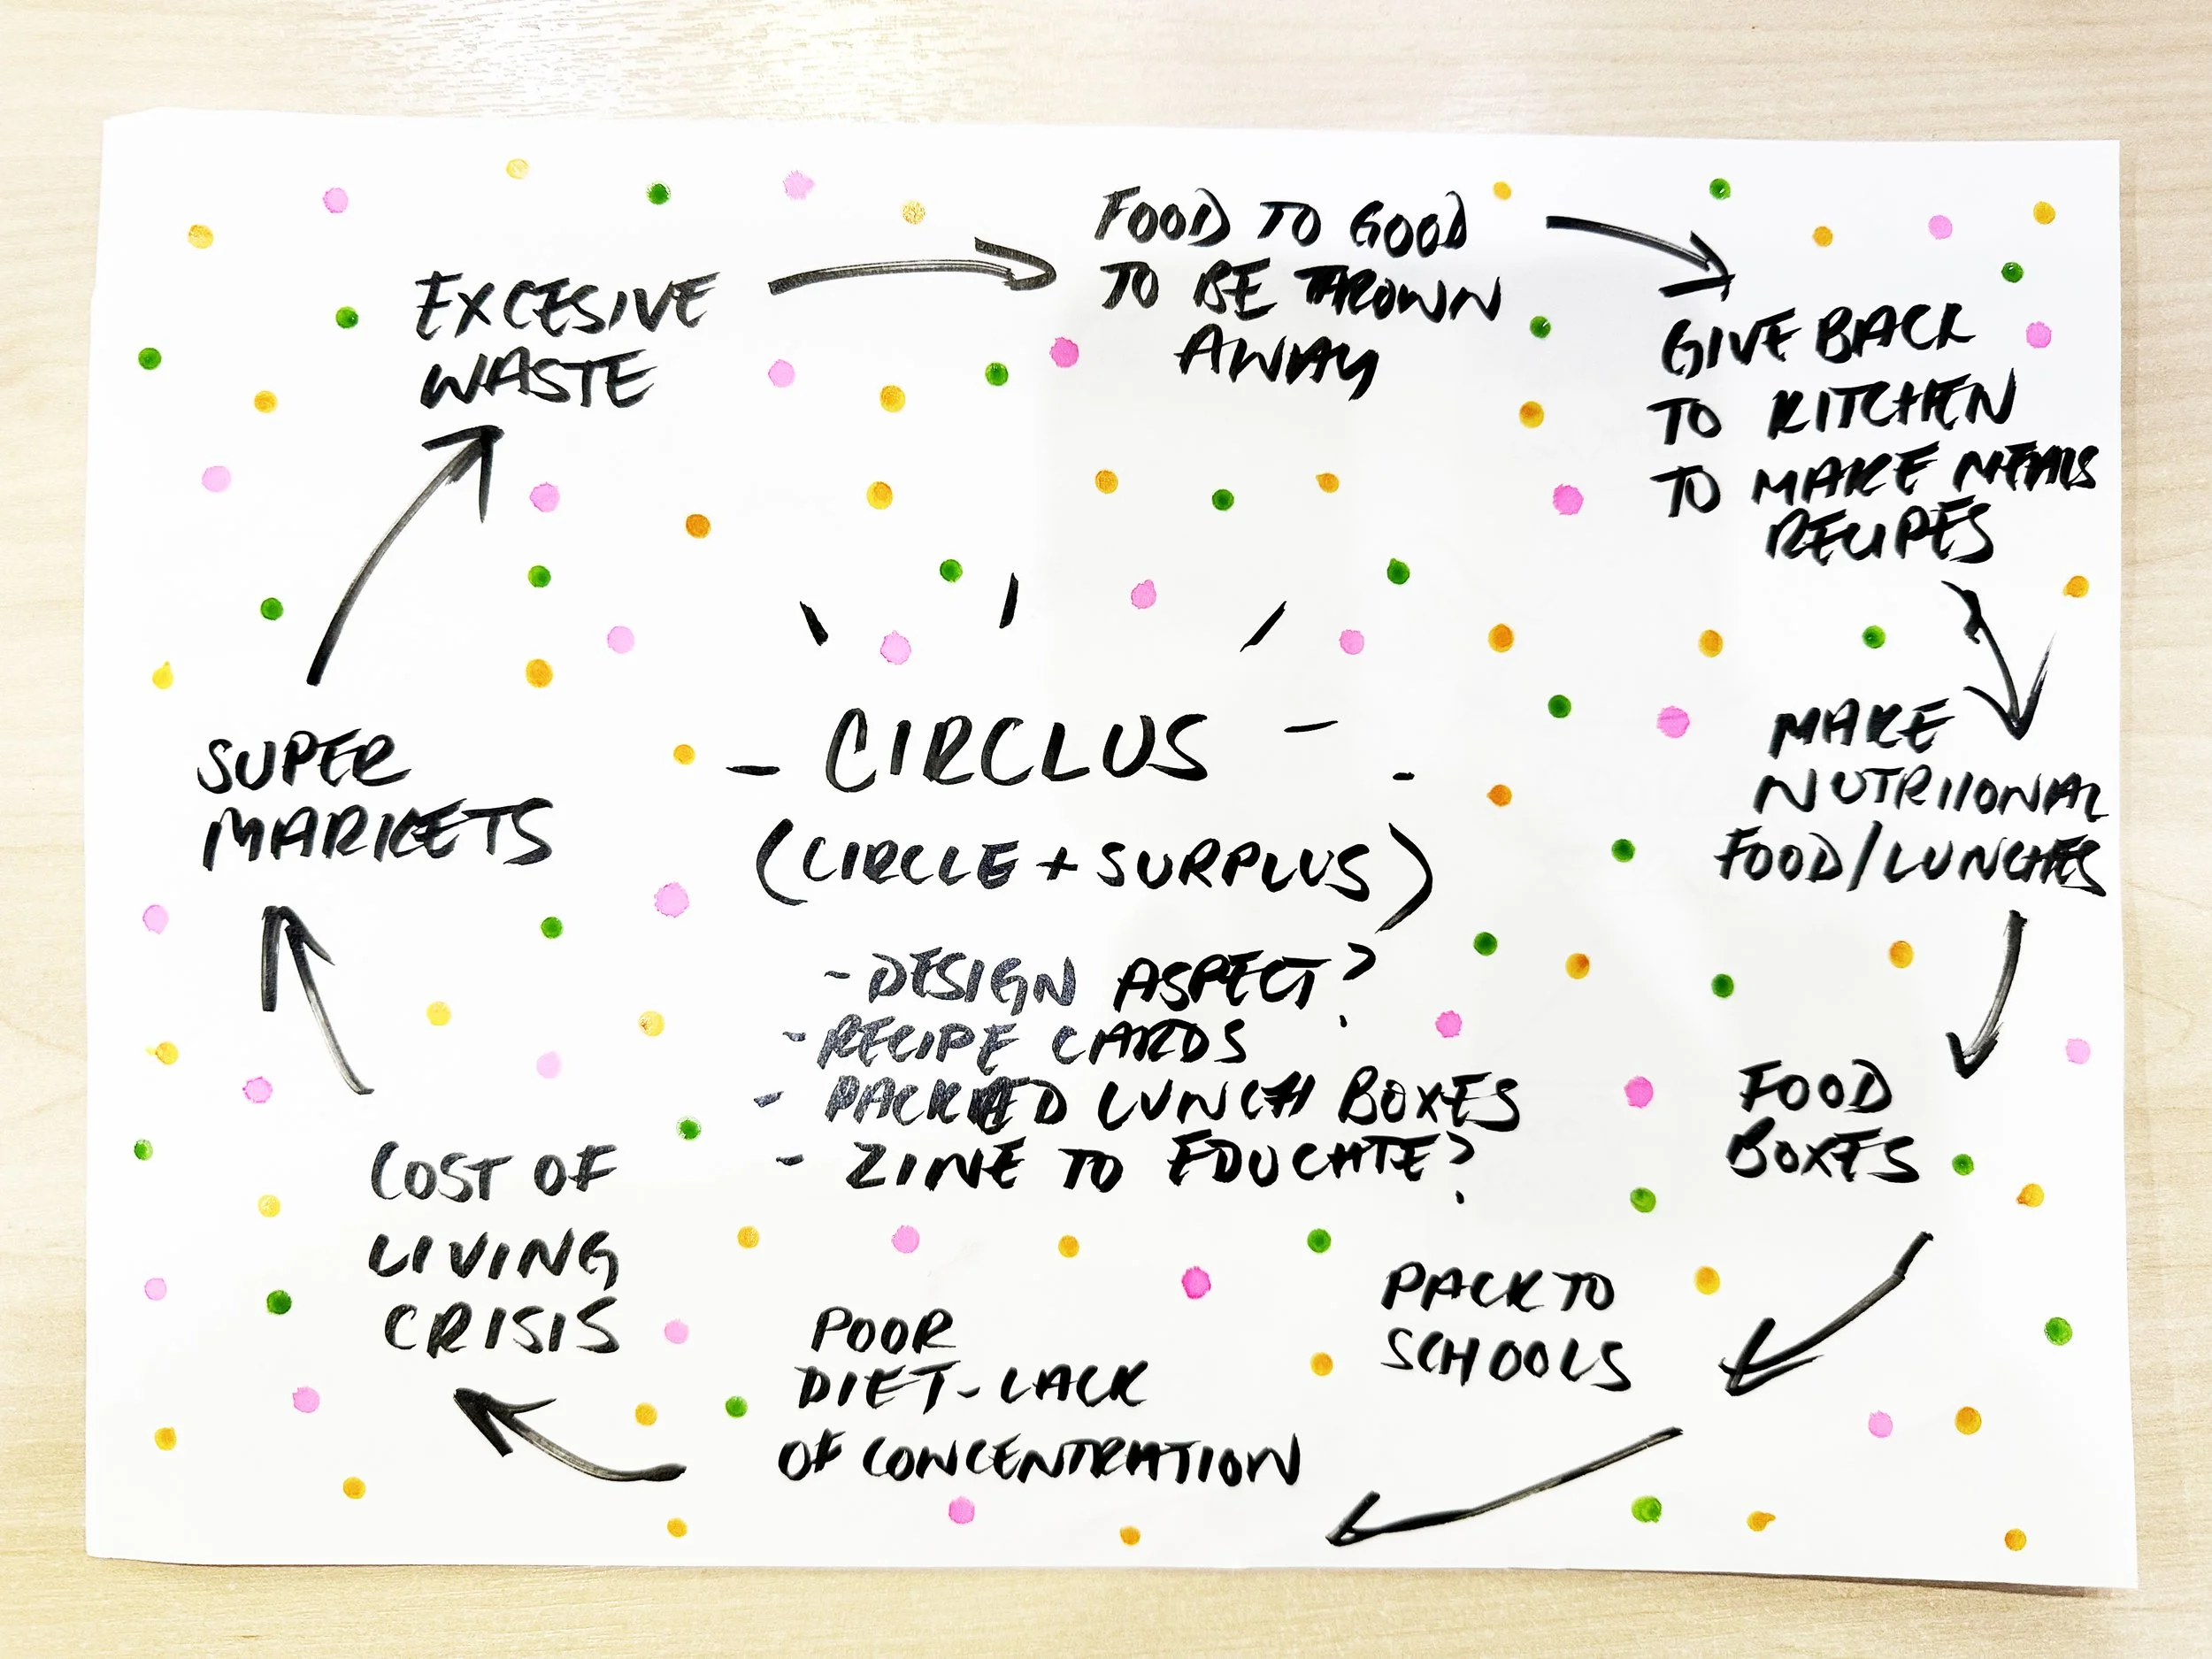 EXCESIVE
WASTE
FOOD TO GOOD
TO BE THROWN
AWAY
GIVE BACK
TO KITCHEN
TO MAKE MEALS
RECIPES
MAKE
NUTRIIONAL
FOOD/LUNCHES
FOOD
BOXES
PACK TO
SCHOOLS
POOR
DIET - LACK
OF CONCENTRATION
COST OF
LIVING
CRISIS
SUPER
MARKETS
- CIRCLUS -
(CIRCLE + SURPLUS)
- DESIGN ASPECT?
- RECIPE CARDS
- PACKED LUNCH BOXES
- ZINE TO EDUCATE?